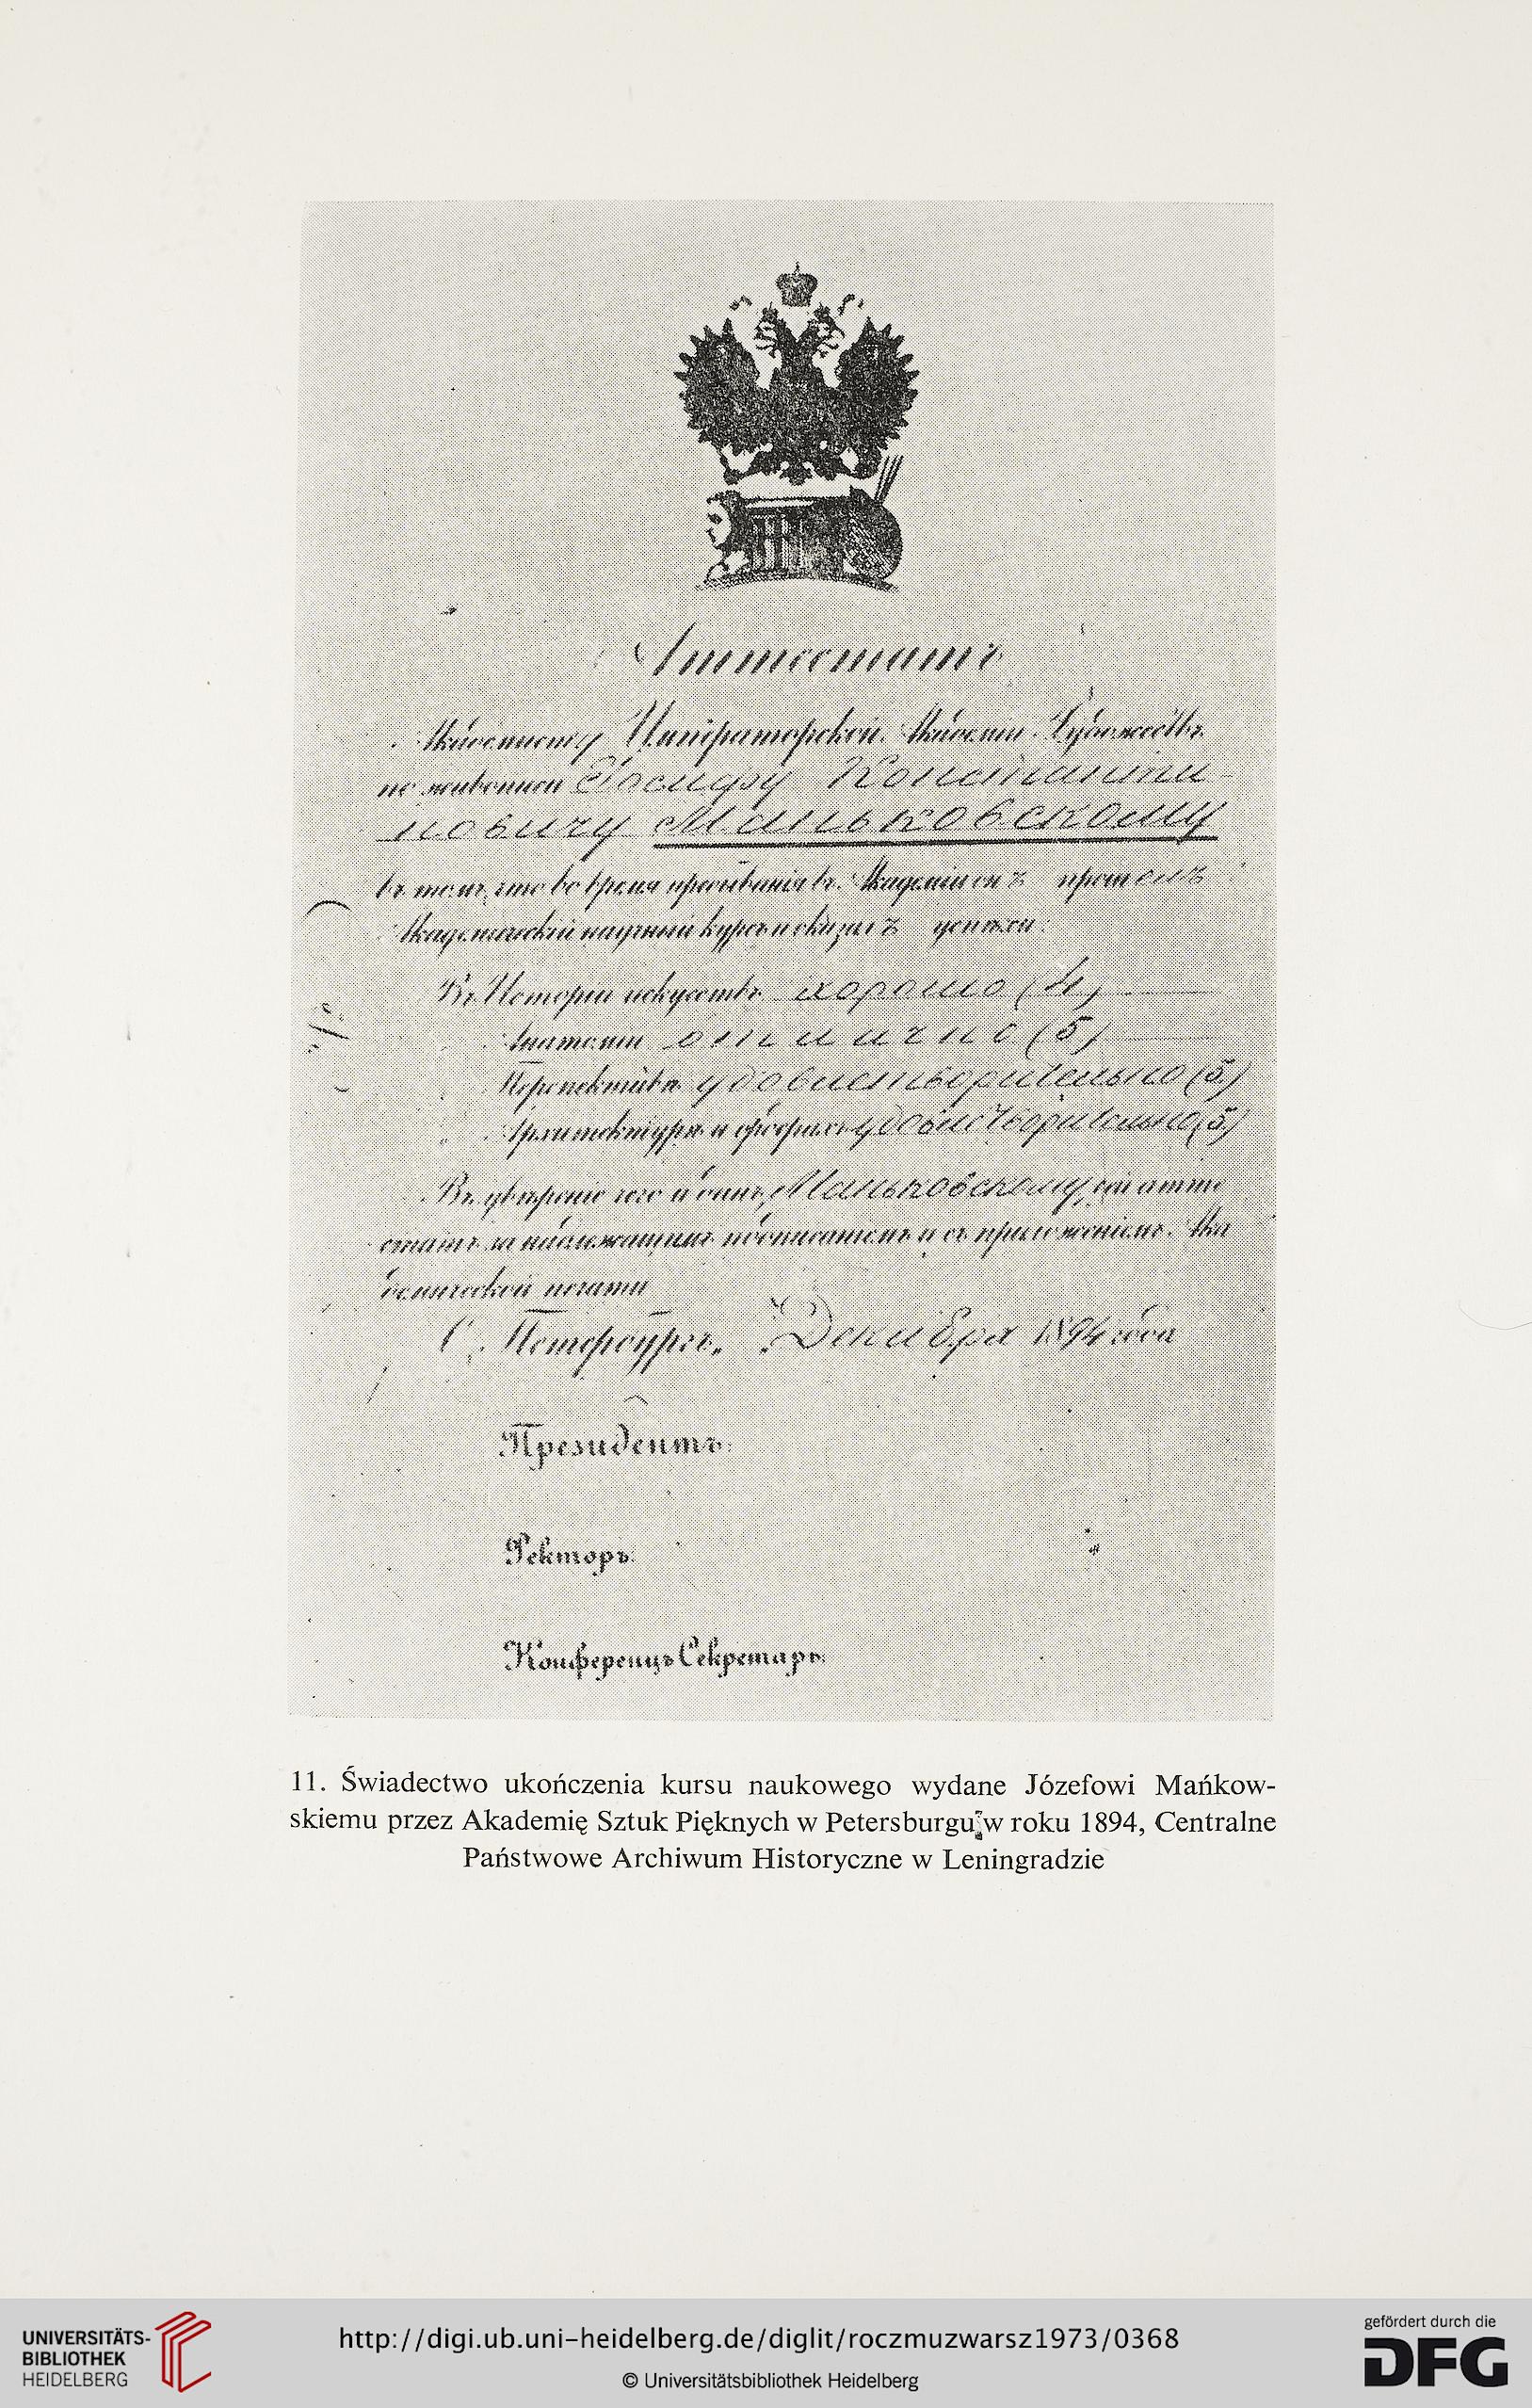 Аттестатъ
Академисту Императорской Академіи Художествъ
по живописи Іосифу Константи-
новичу Маньковскому
въ томъ, что во время пребыванія въ Академіи онъ прошелъ
Академическій научный курсъ и оказалъ успѣхи:
Въ Исторіи искусствъ хорошо (4)
Анатоміи отлично (5)
Перспективѣ удовлетворительно (3)
Архитектурѣ и удовлетворительно (3)
Въ увѣреніе чего и данъ Маньковскому сей атте
статъ за надлежащимъ подписаніемъ и съ приложеніемъ Ака
демической печати
С. Петербургъ, „ Декабря 1894 года
Президентъ:
Ректоръ:
Конференцъ Секретарь:
11. Świadectwo ukończenia kursu naukowego wydane Józefowi Mańkow-
skiemu przez Akademię Sztuk Pięknych w Petersburgu w roku 1894, Centralne
Państwowe Archiwum Historyczne w Leningradzie
UNIVERSITÄTS-
BIBLIOTHEK
HEIDELBERG
http://digi.ub.uni-heidelberg.de/diglit/roczmuzwarsz1973/0368
© Universitätsbibliothek Heidelberg
gefördert durch die
DFG